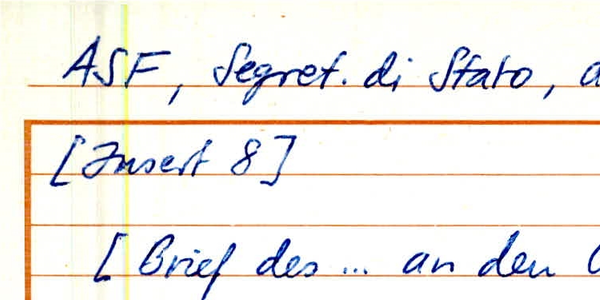 ASF, Segret. di Stato,
[Insert 8]
[Brief des ... an den